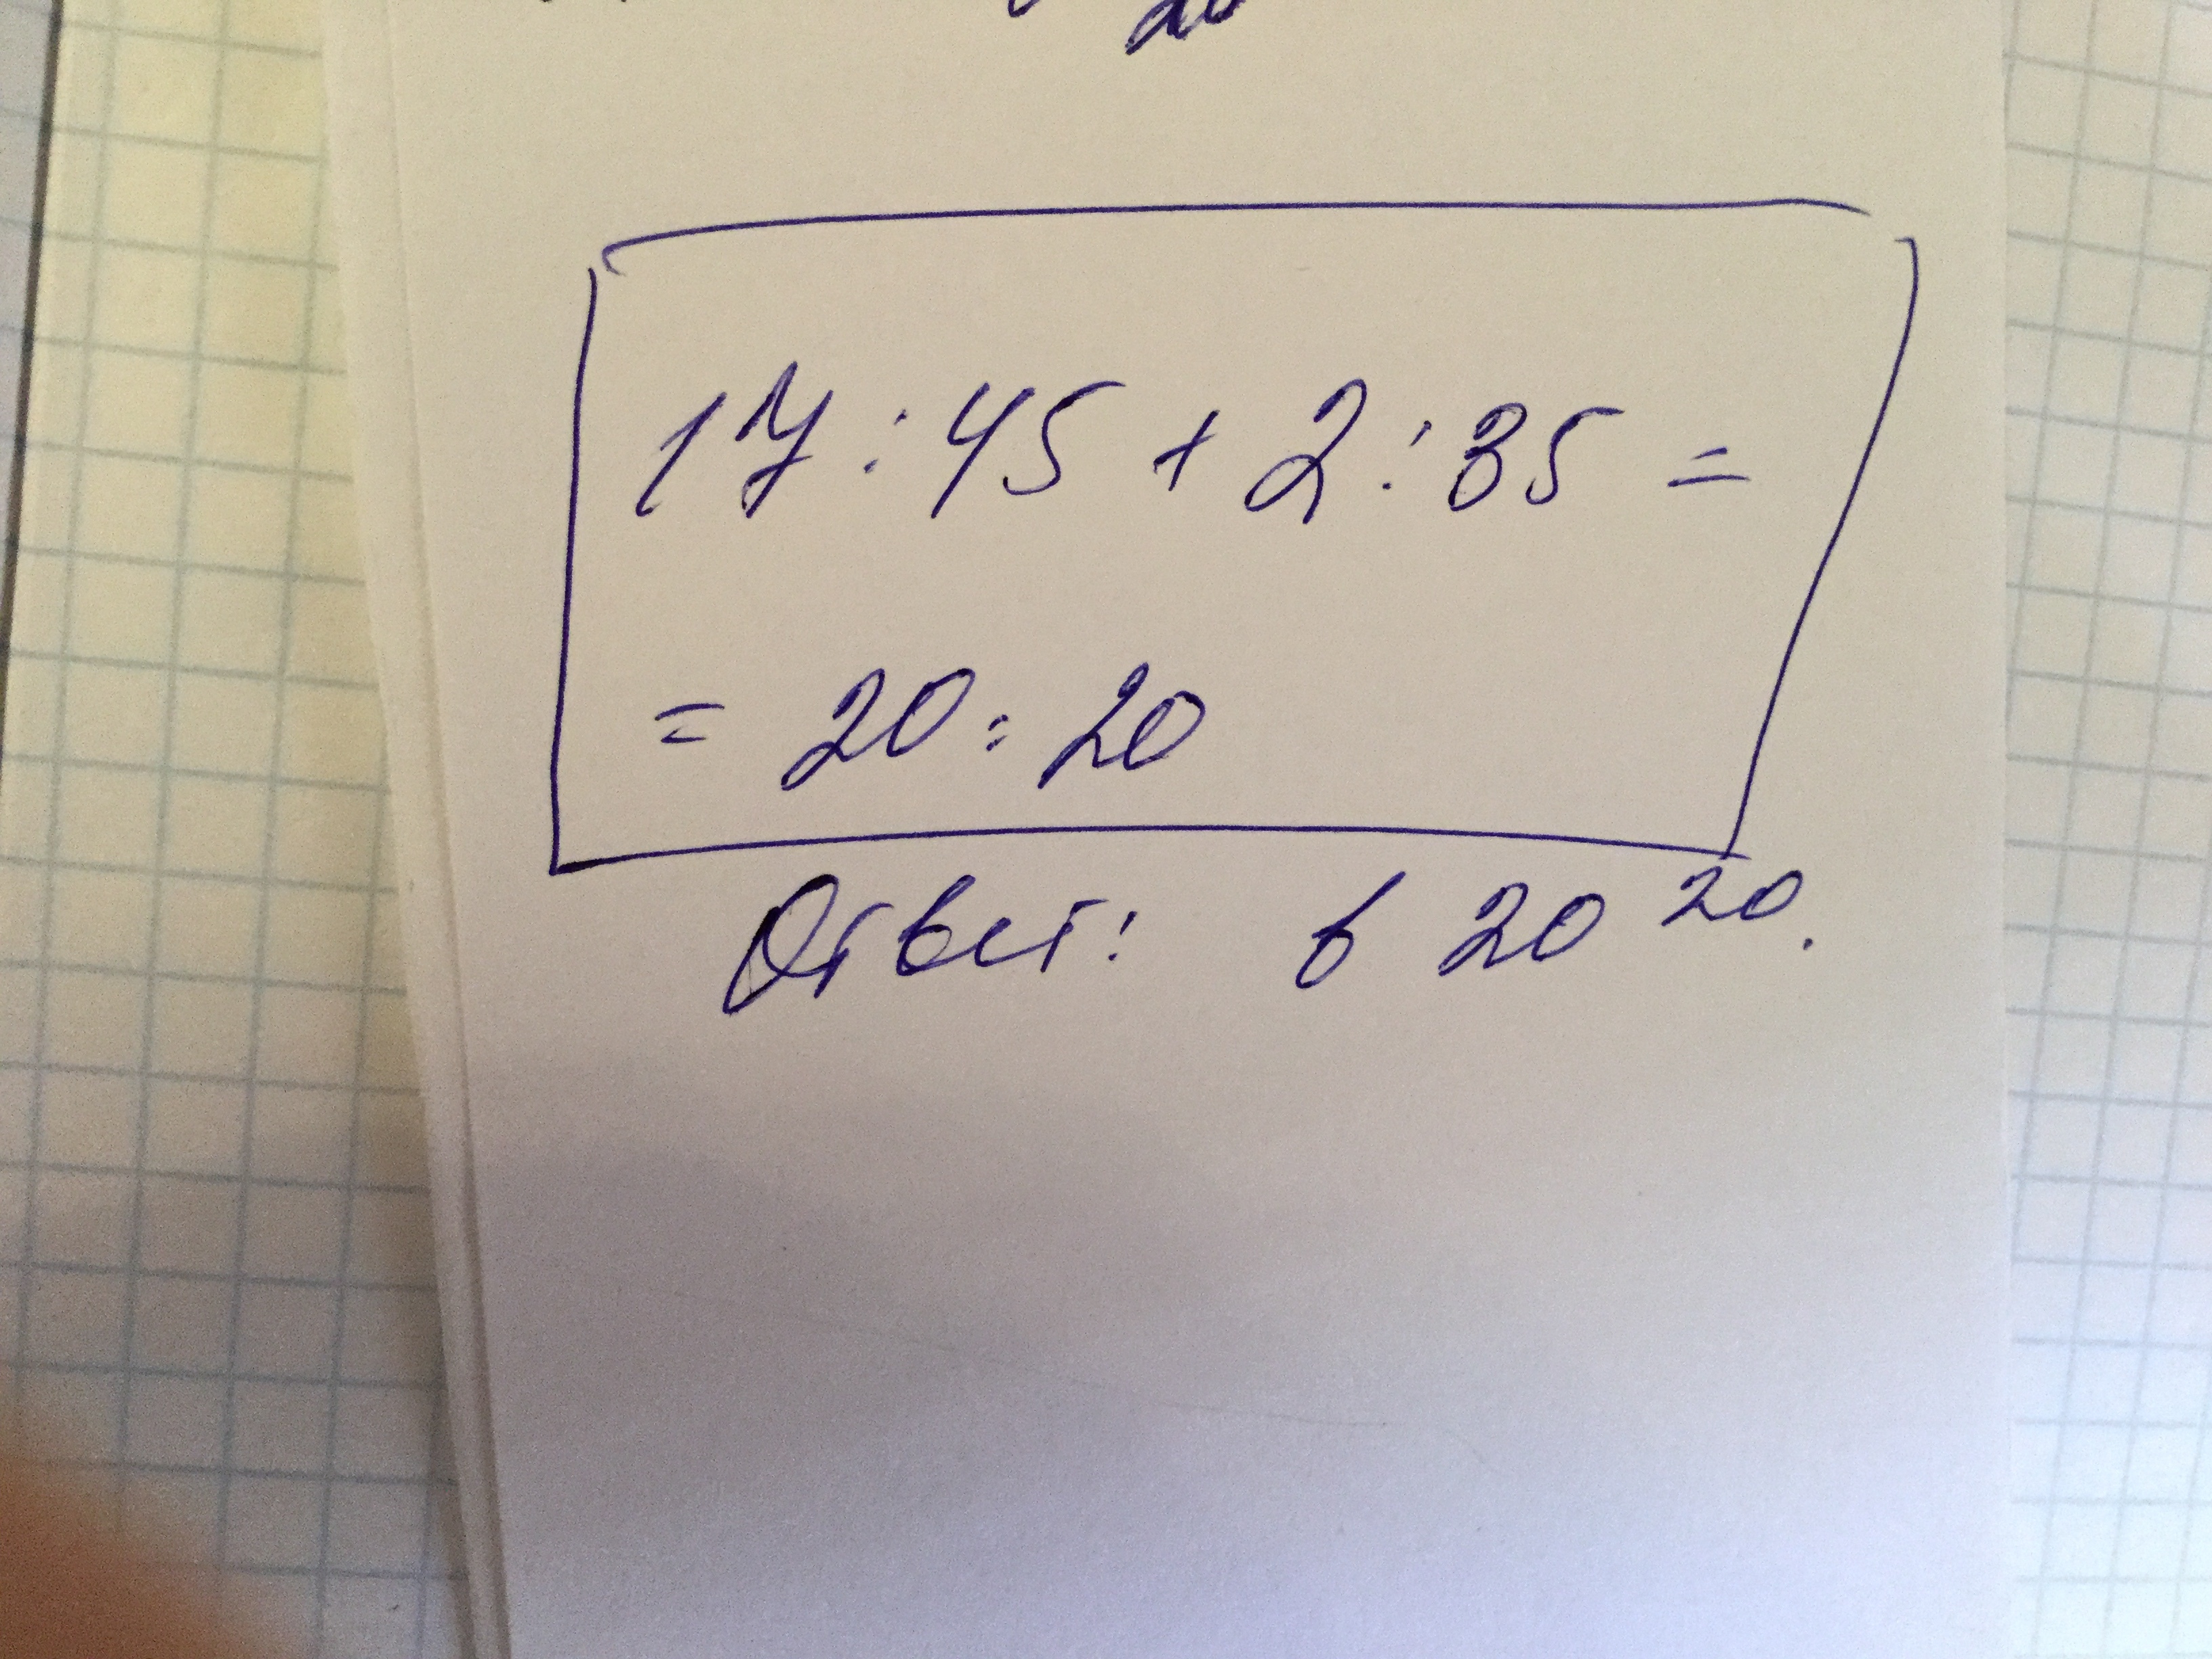 17:45 + 2:35 =
= 20:20
Ответ: в 20 20.